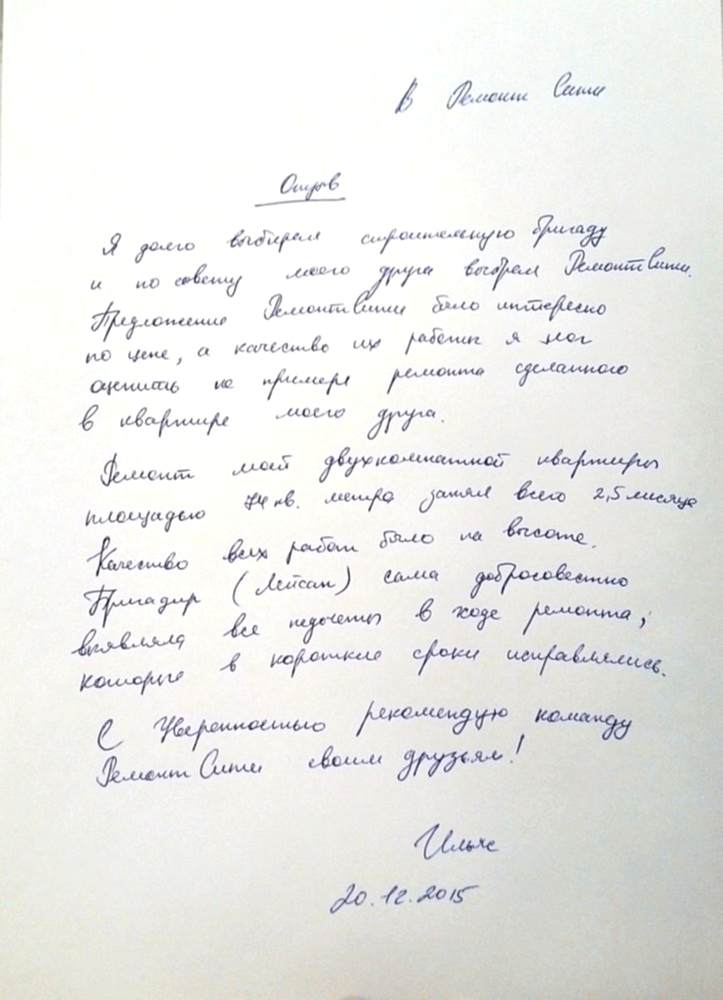 В Ремонт Сити
Отзыв
Я долго выбирал строительную бригаду
и по совету моего друга выбрал РемонтСити.
Предложение РемонтСити было интересно
по цене, а качество их работы я мог
оценить на примере ремонта сделанного
в квартире моего друга.
Ремонт моей двухкомнатной квартиры
площадью 74 кв. метра занял всего 2,5 месяца
Качество всех работ было на высоте.
Бригадир (Лейсан) сама добросовестно
выявляла все недочеты в ходе ремонта,
которые в короткие сроки исправлялись.
С уверенностью рекомендую команду
Ремонт Сити своим друзьям!
Ильяс
20.12.2015